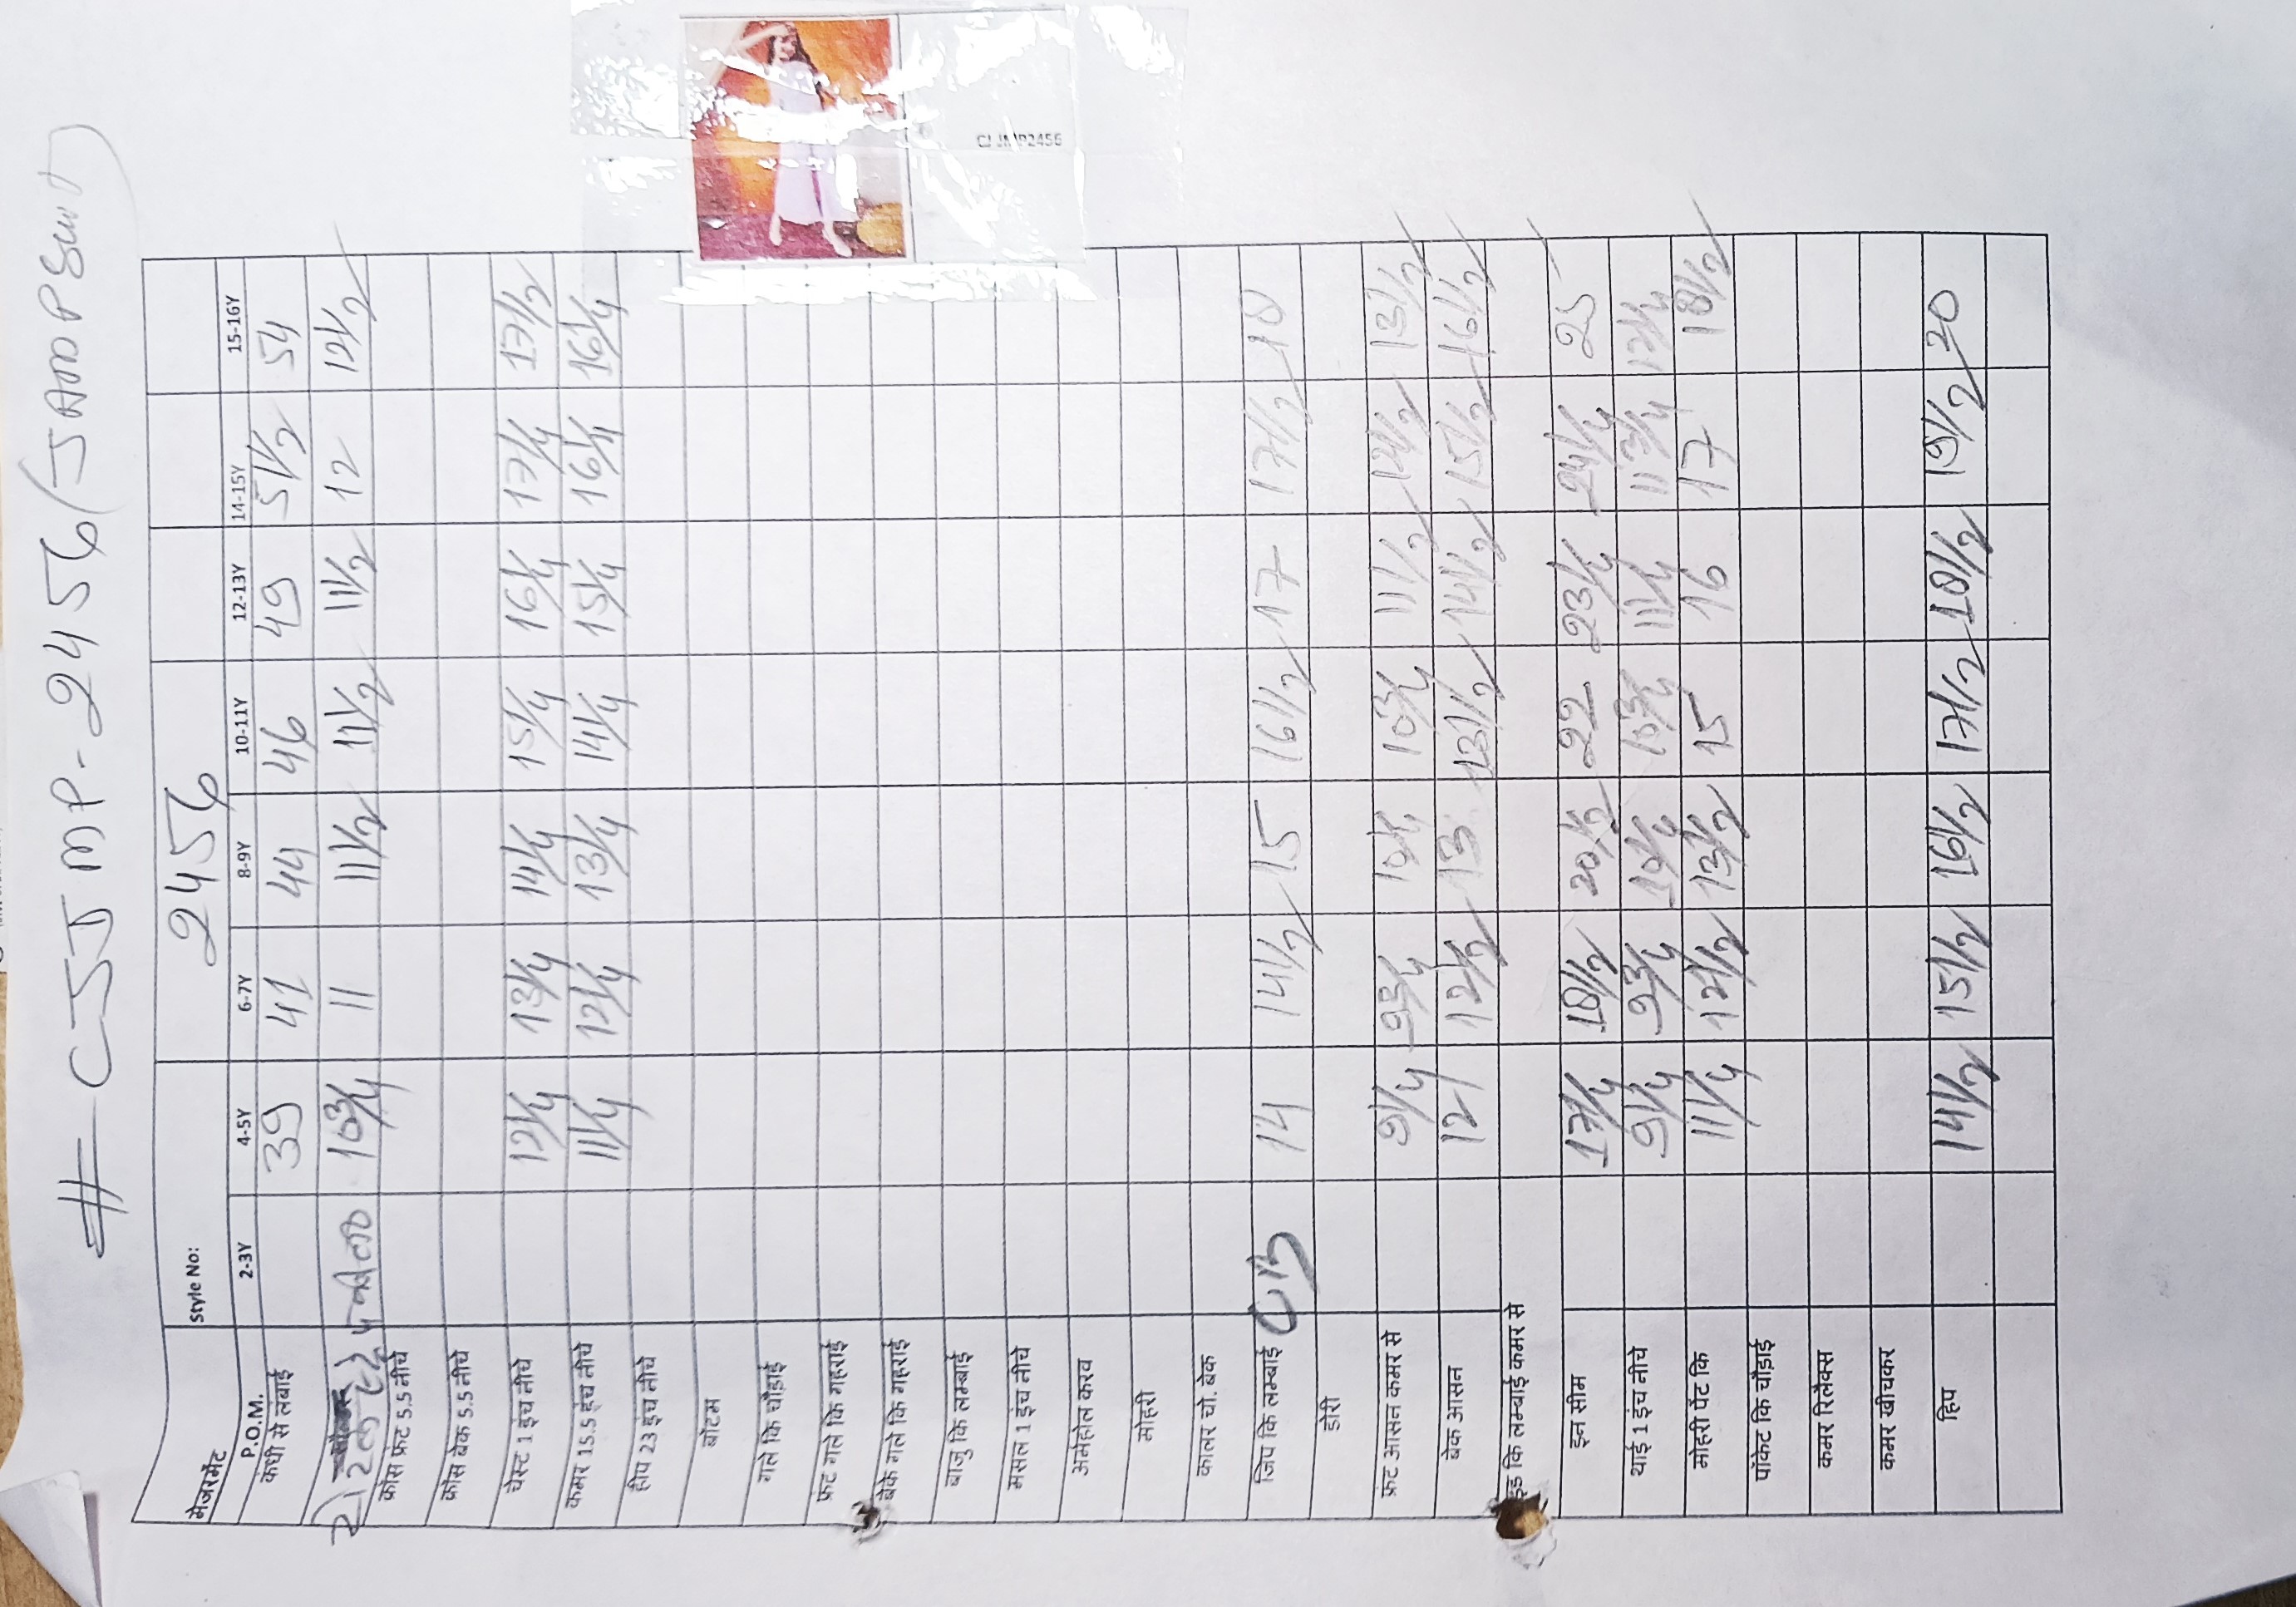 # CJJMP-2456 (JAMP Suit)
CJJMP2456
मेजरमेंट Style No: 2456
P.O.M. 2-3Y 4-5Y 6-7Y 8-9Y 10-11Y 12-13Y 14-15Y 15-16Y
कंधी से लंबाई 39 41 44 46 49 51 1/2 54
10 3/4 11 11 1/2 11 1/2 11 1/2 12 12 1/2
क्रॉस फ्रंट 5.5 नीचे
क्रॉस बेक 5.5 नीचे
चेस्ट 1 इंच नीचे 12 1/4 13 1/4 14 1/4 15 1/4 16 1/4 17 1/4 17 1/2
कमर 15.5 इंच नीचे 11 1/4 12 1/4 13 1/4 14 1/4 15 1/4 16 1/4 16 1/4
हीप 23 इंच नीचे
बॉटम
गले कि चौड़ाई
फ्रंट गले कि गहराई
बेक गले कि गहराई
बाजु कि लम्बाई
मसल 1 इंच नीचे
अर्महोल करव
मोहरी
कालर चो. बेक
जिप कि लम्बाई 14 14 1/2 15 16 1/2 17 17 1/2 18
डोरी
फ्रंट आसन कमर से 9 1/4 9 3/4 10 1/4 10 3/4 11 1/2 12 1/2 13 1/2
बेक आसन 12 12 1/2 13 13 1/2 14 1/2 15 1/2 16 1/2
इड कि लम्बाई कमर से
इन सीम 17 1/4 18 1/2 20 1/2 22 23 1/4 24 1/4 25
थाई 1 इंच नीचे 9 1/4 9 3/4 10 3/4 11 1/4 11 3/4 12 1/4
मोहरी पेंट कि 11 1/4 12 1/2 13 1/2 15 16 17 18 1/2
पॉकेट कि चौड़ाई
कमर रिलैक्स
कमर खीचकर
हिप 14 1/2 15 1/2 16 1/2 17 1/2 18 1/2 19 1/2 20